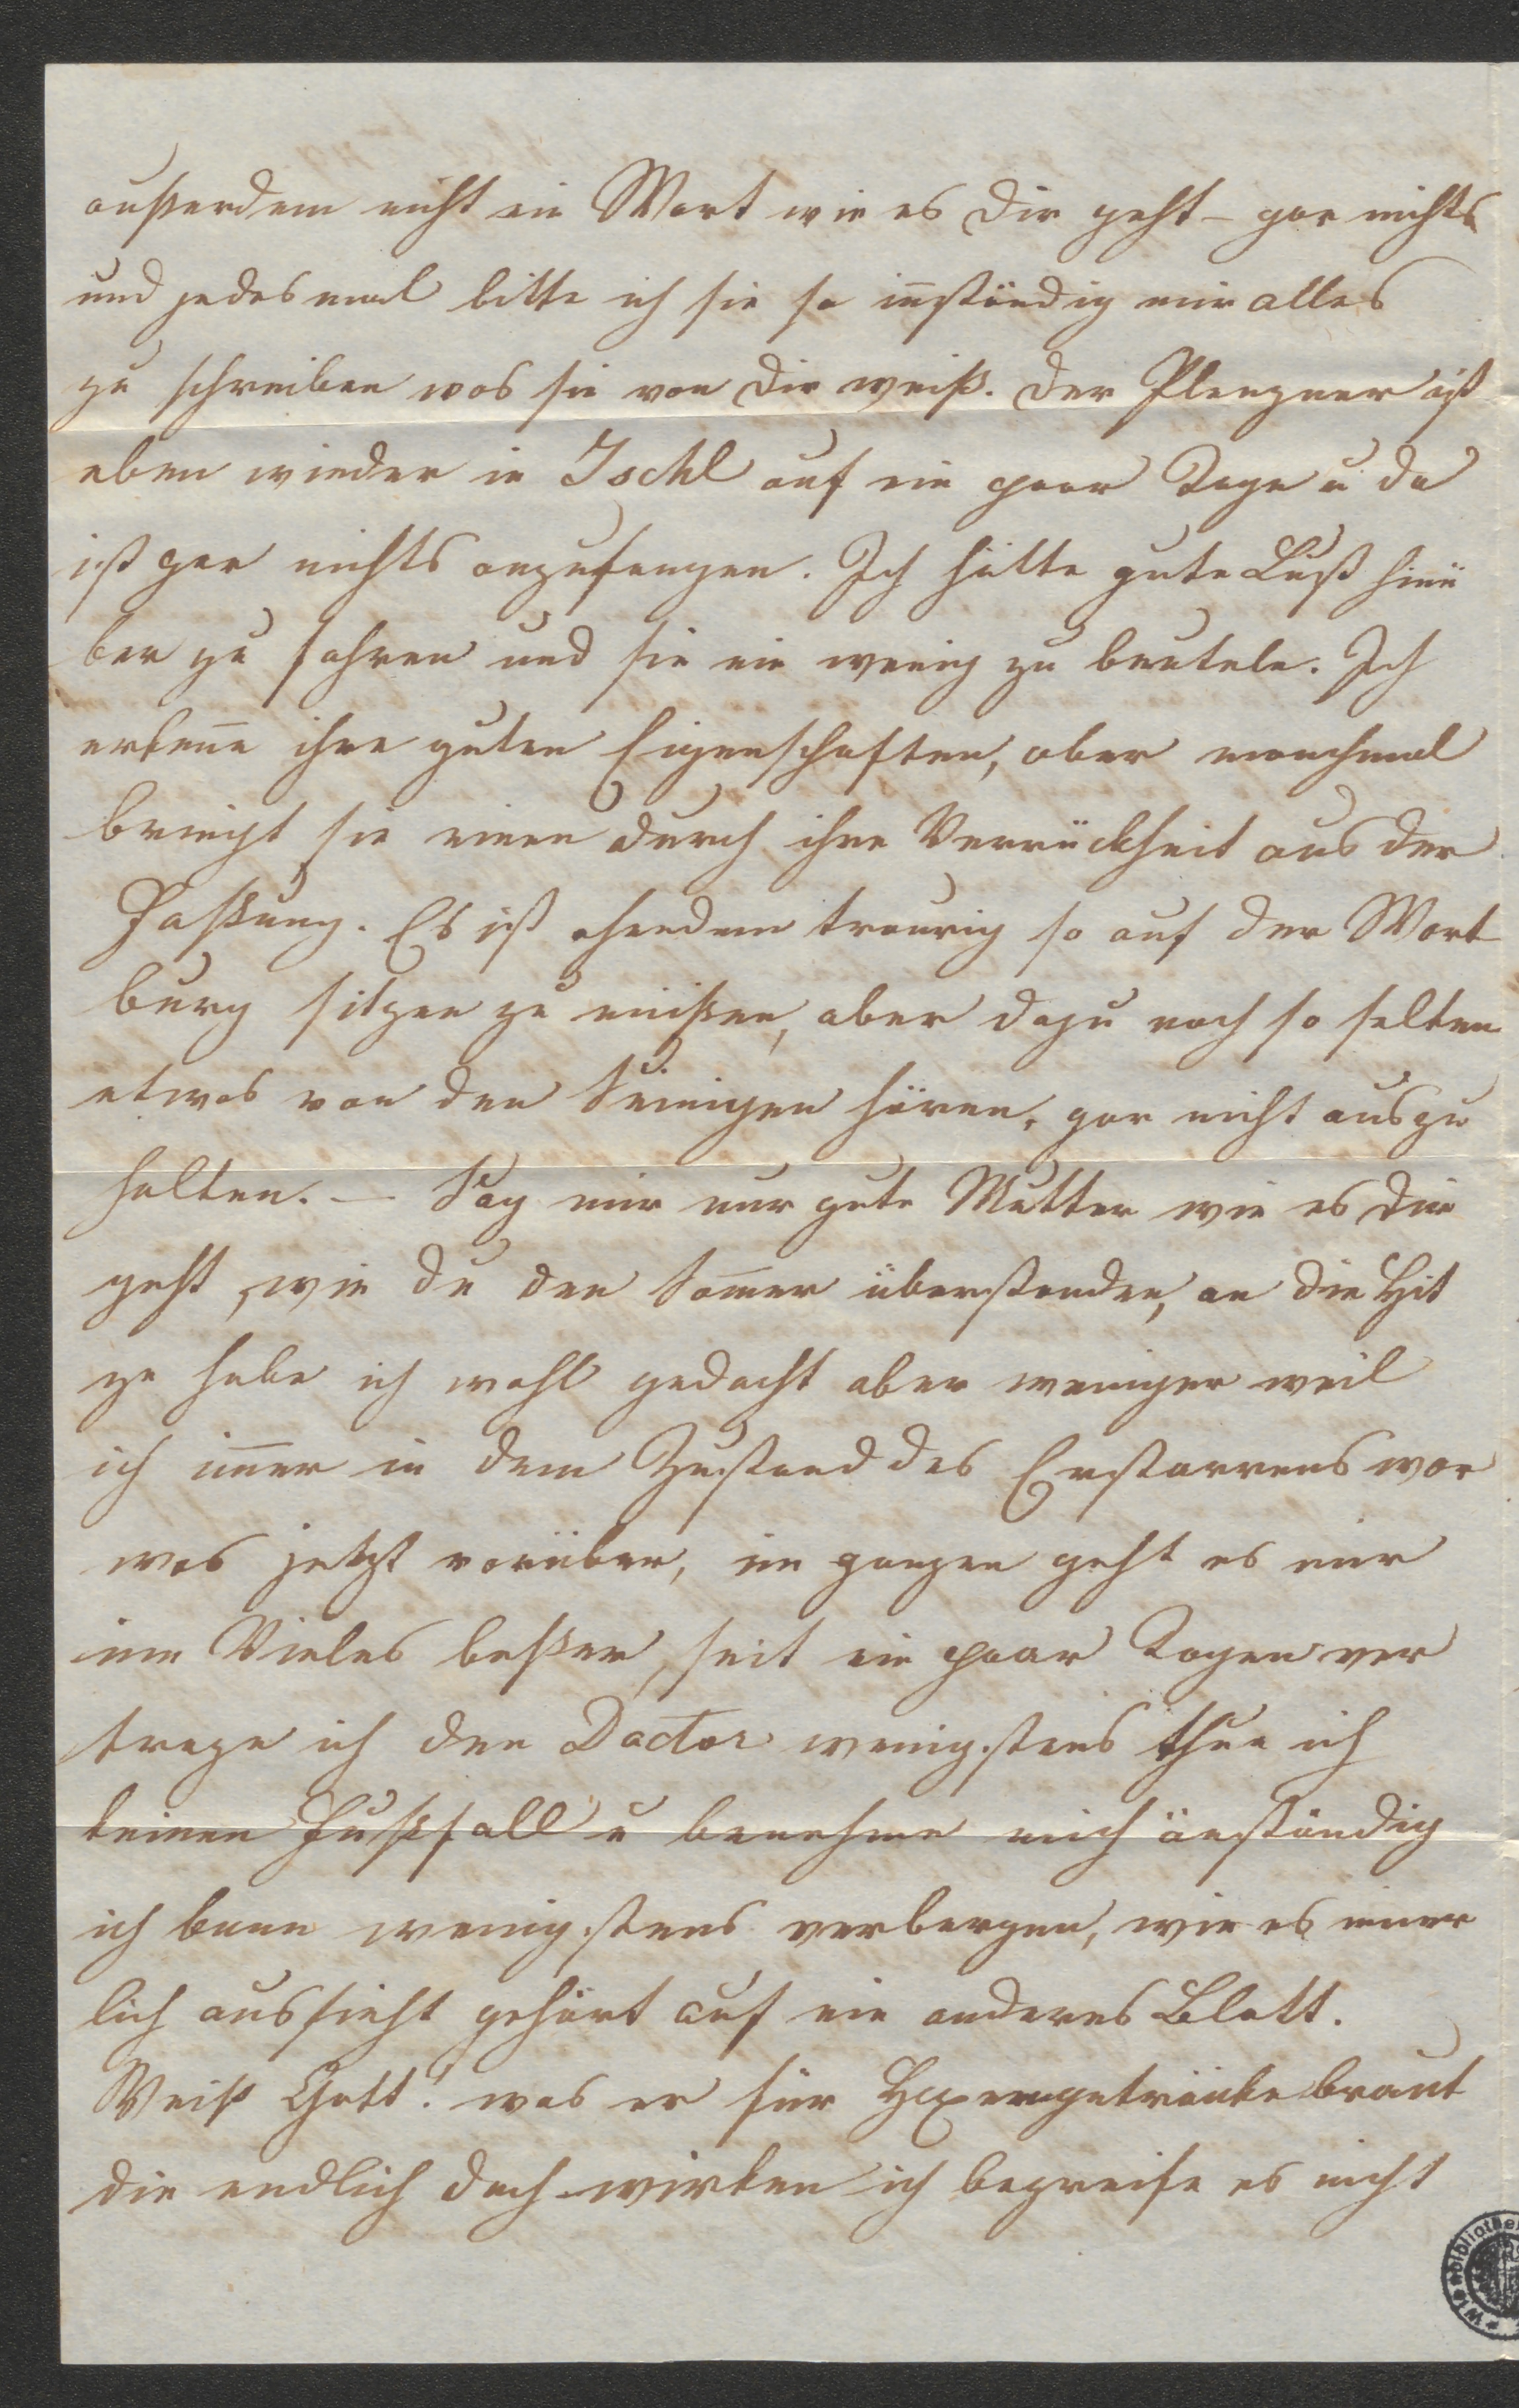 außerdem nicht ein Wort wie es dir geht – gar nichts
und jedesmal bitte ich sie so inständig mir alles
zu schreiben was sie von dir weiß. Der Plenzner ist
eben wieder in Ischl auf ein paar Tage u da
ist gar nichts anzufangen. Ich hätte gute Lust hinü
ber zu fahren und sie ein wenig zu beuteln. Ich
erkeñe ihre guten Eigenschaften, aber manchmal
bringt sie einen durch ihre Verrücktheit aus der
Faßung. Es ist ohendem traurig so auf der Wart
burg sitzen zu müßen, aber dazu noch so selten
etwas von den Seinigen hören, gar nicht auszu
halten. — Sag mir nur gute Mutter wie es dir
geht, wie du den Som̄er überstanden, an die Hit
ze habe ich wohl gedacht aber weniger weil
ich im̄er in dem Zustand des Erstarrens war
was jetzt vorüber, im ganzen geht es mir
um Vieles beßer, seit ein paar Tagen ver
trage ich den Doctor wenigstens thue ich
keinen Fußfall u benehme mich anständig
ich kann wenigstens verbergen, wie es inner
lich aussieht gehört auf ein anderes Blatt.
Weiß Gott! was er für Hexengetränke braut
die endlich doch wirken ich begreife es nicht